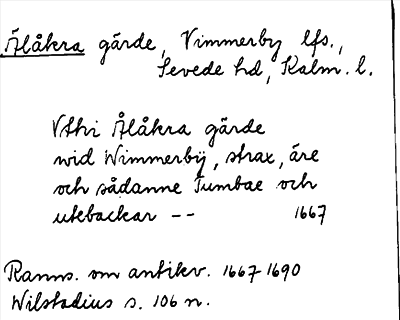 Älåkra gärde, Vimmerby lfs.,
Sevede hd, Kalm. l.
Vthi Ålåkra gärde
wid Wimmerbÿ, strax, äre
och sådanne Tumbae och
utebackar --    1667
Ranns. om antikv. 1667-1690
Wilstadius s. 106 n.